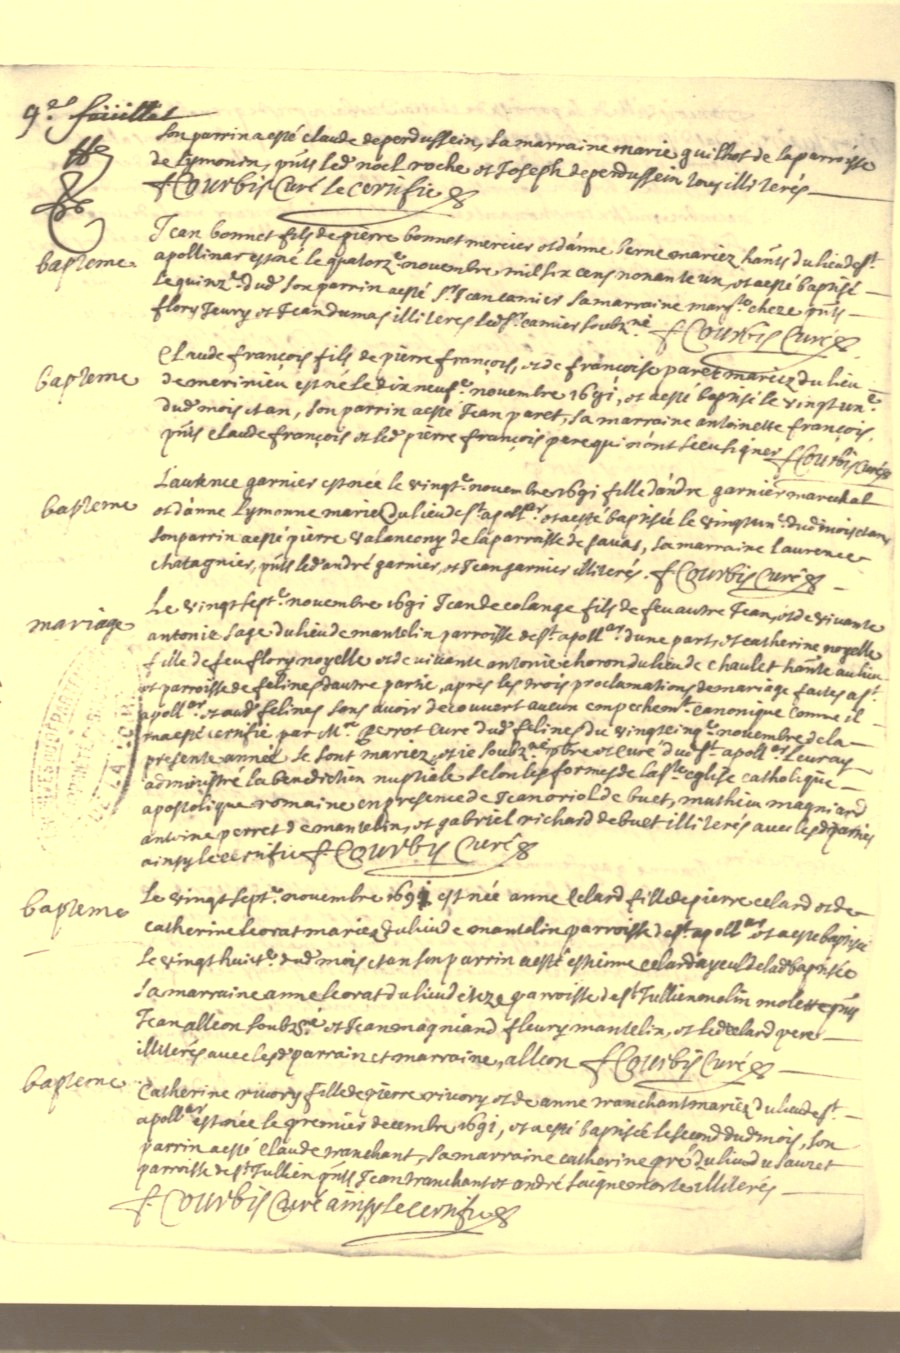 9.e feüillet
son parrin a esté claude deperdussein, sa marraine marie guilhot de la parroisse
de Lymonin, pñts led. noel roche et Joseph deperdussein tous illiterés
f Courbis Curé le certifie
bapteme
Jean bonnet fils de pierre bonnet mercier et d'anne serne mariez hãnts du lieu de st.
apollinar est né le quatorze. novembre mil six cens nonante un, et a esté baptisé
le quinz.e dud. son parrin a esté sr. Jean camier sa marraine marg.te cheze pñts
flory Jeury et Jean dumas illiteres led. sr. camier soubz.né f Courbis Curé
bapteme
Claude françois fils de pierre françois, et de françoise paret mariez du lieu
de merinieu est né le dix neuf.e novembre 1691, et a esté baptisé le vingt un.e
dud. mois et an, son parrin a esté Jean paret, sa marraine antoinette françois,
pñts claude françois et led. pierre françois pere qui n'ont sceu signer f Courbis Curé
bapteme
Laurence garnier est née le vingt.e novembre 1691 fille d'andré garnier marechal
et d'anne Lymonne mariez du lieu de st. apoll.ar et a esté baptisée le vingt un.e dud. mois et an
son parrin a esté pierre valançony de la parroisse de savas, sa marraine laurence
chatagnier, pñts led. andré garnier, et Jean garnier illiterés. f Courbis Curé
mariage
Le vingt sept.e novembre 1691 Jean de colange fils de feu autre Jean, et de vivante
antonie sage du lieu de mantelin parroisse de st. apoll.ar d'une part, et catherine noyelle
fille de feu flory noyelle et de vivante antonie choron du lieu de chaulet hãnte au lieu
et parroisse de felines d'autre partie, apres les trois proclamations de mariage faites a st.
apoll.ar et aud. felines sans avoir decouvert aucun empechem.t canonique comme il
m'a esté certifié par M.re Perrot Curé dud. felines du vingt cinq.e novembre de la
presente année se sont mariez, et je soubz.né pbre et Curé dud. st. apoll.ar leur ay
administré la benediction nuptiale selon les formes de la ste. eglise catholique
apostolique romaine en presence de Jean oriol de buet, mathieu magniard
antoine perret de mantelin, et gabriel richard de buet illiterés avec lesd. parties
ainsy le certifie f. Courbis Curé
bapteme
Le vingt sept.e novembre 1691 est née anne Celard fille de pierre celard et de
catherine leorat mariez du lieu de mantelin parroisse de st. apoll.ar et a este baptisée
le vingt huit.e dud. mois et an son parrin a esté estienne celard ayeul de lad. baptisée
sa marraine anne leorat du lieu d'eteze parroisse de st. Jullien molin molette pñts
Jean alleon soubz.né et Jean magniand fleury mantelin, et led. celard pere
illiterés avec lesd. parrain et marraine, alleon f Courbis Curé
bapteme
Catherine rivory fille de pierre rivory et de anne tranchant mariez du lieu de st.
apoll.ar est née le premier decembre 1691, et a esté baptisée le second dud. mois, son
parrin a esté Claude tranchant, sa marraine catherine pré du lieu du sauzet
parroisse de st. Jullien pñts Jean tranchant et andré saignemorte illiterés
f. Courbis Curé ainsy le certifie